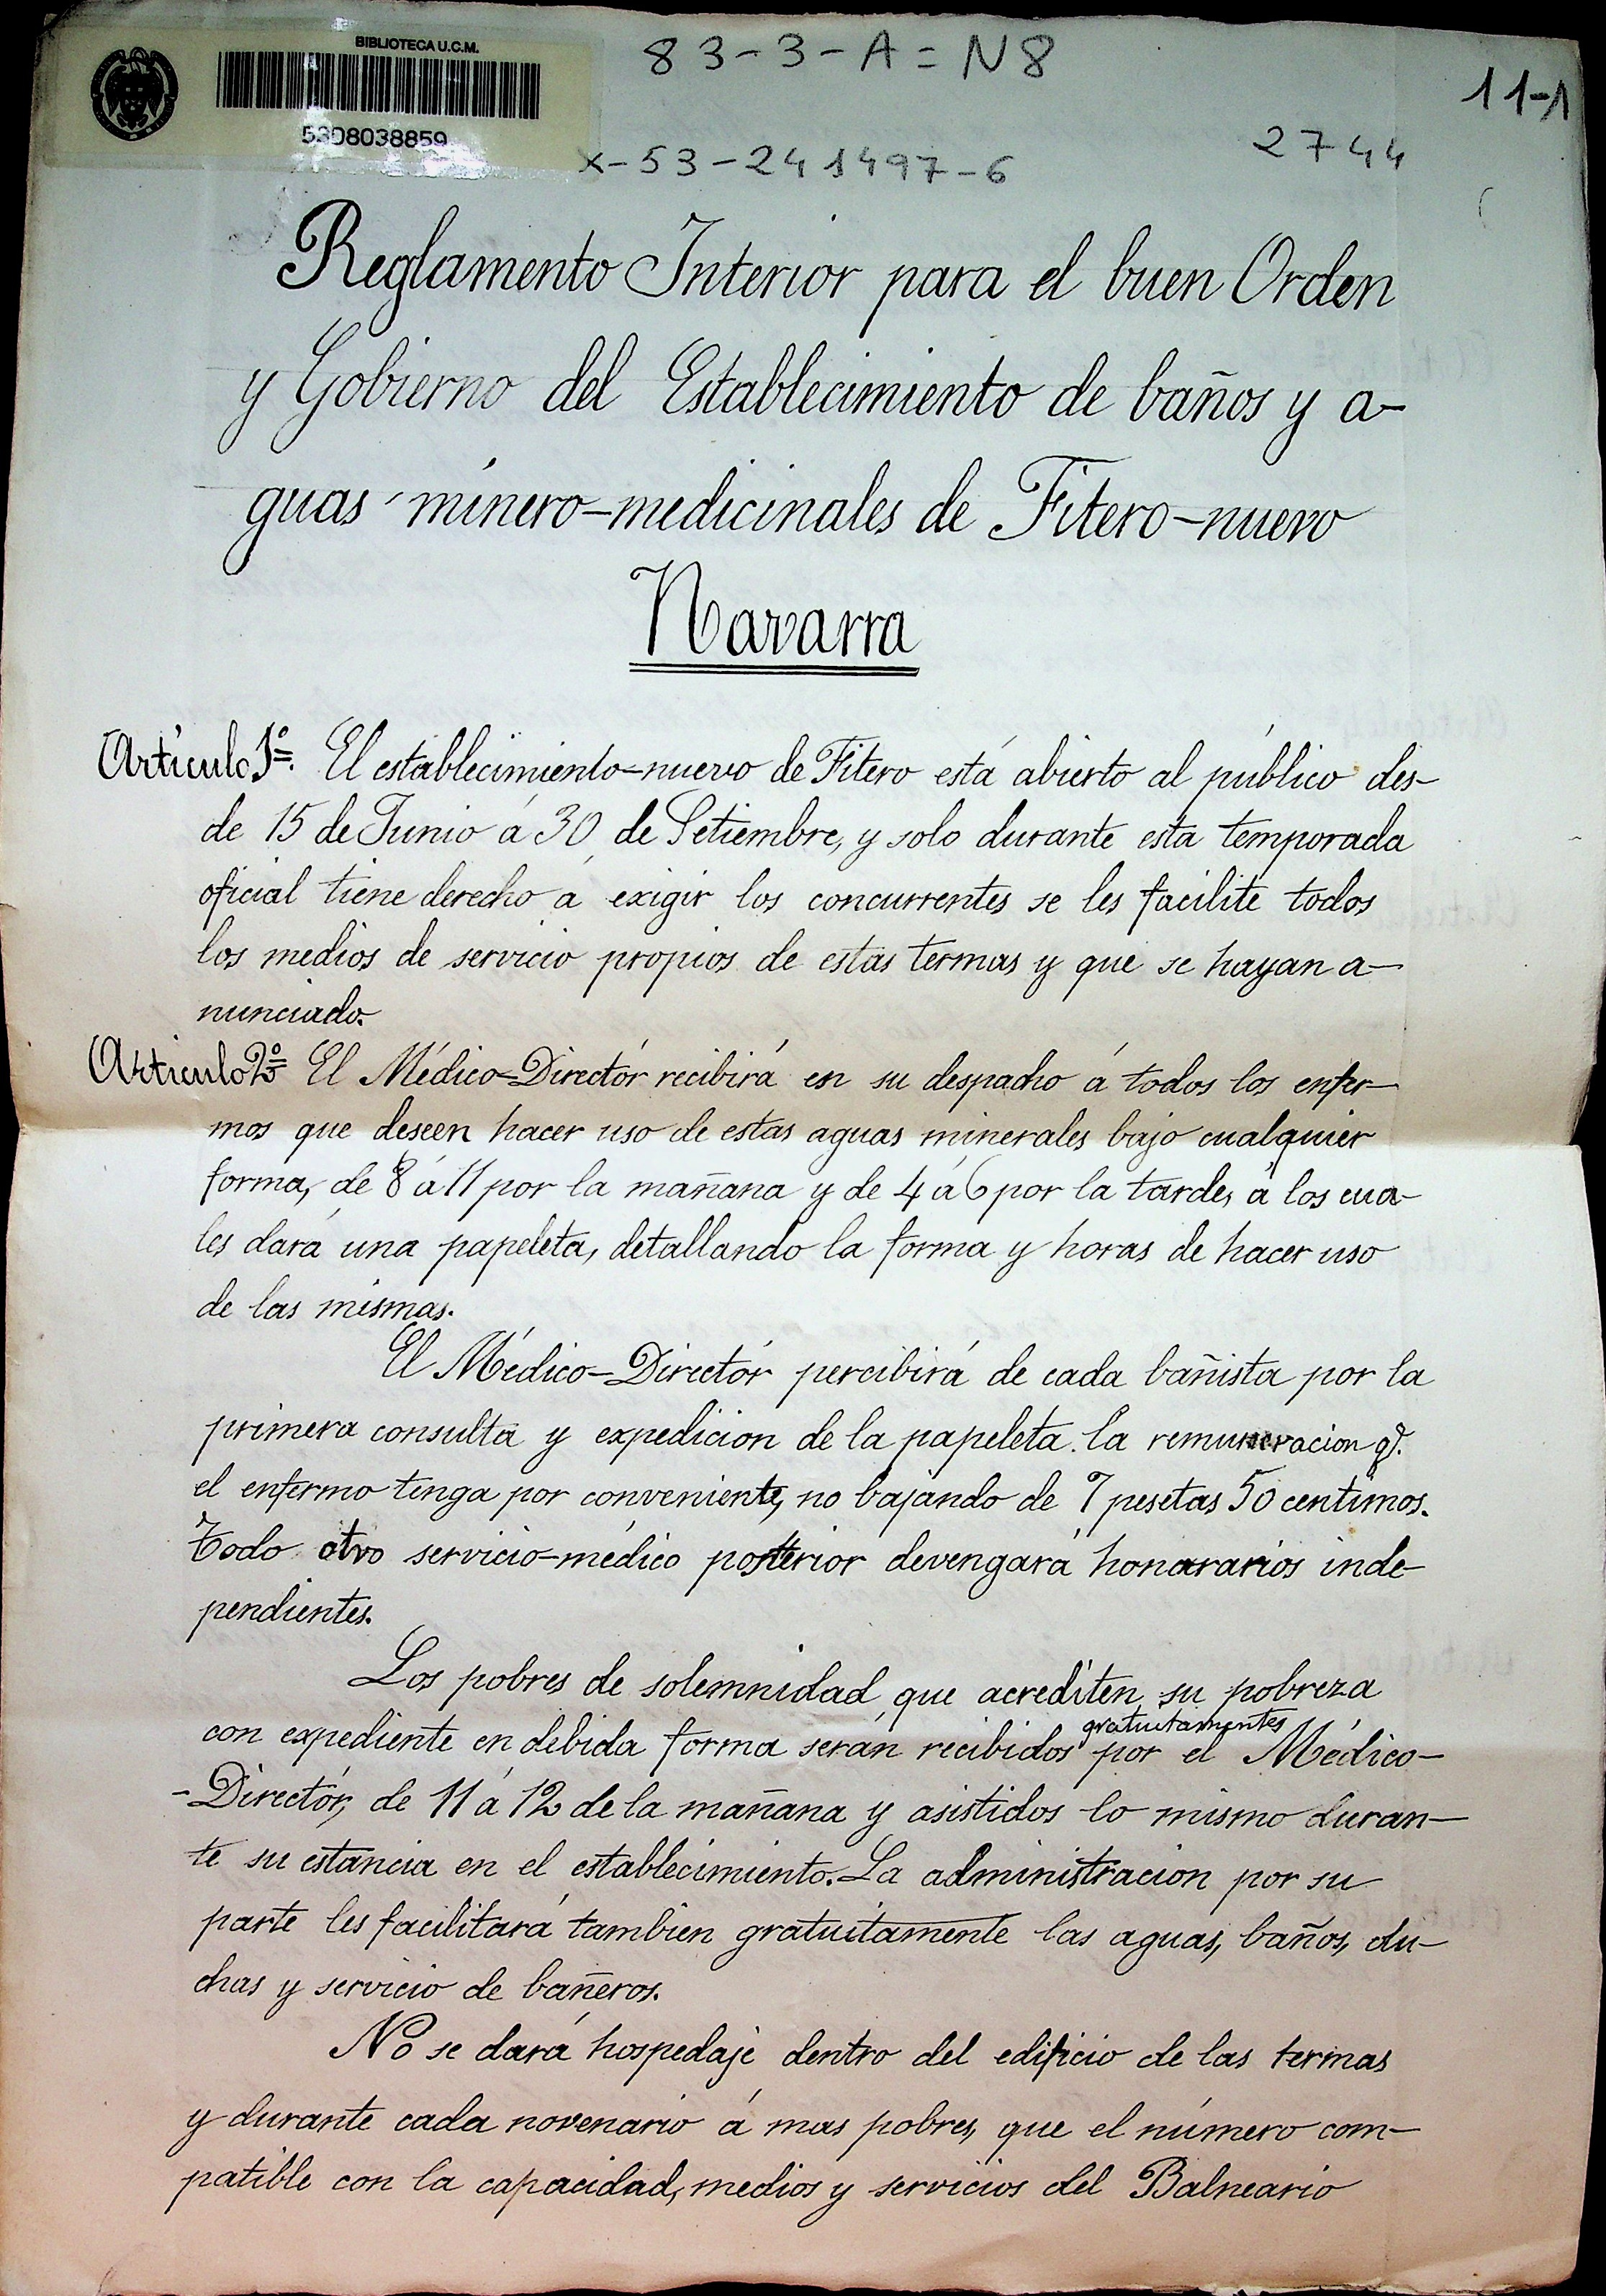 BIBLIOTECA U.C.M.
5308038859
83-3-A=N8
11-1
x-53-241497-6
2744
Reglamento Interior para el buen Orden
y Gobierno del Establecimiento de baños y a-
guas minero-medicinales de Fitero-nuevo
Navarra
Artículo 1º. El establecimiento-nuevo de Fitero está abierto al público des-
de 15 de Junio á 30 de Setiembre, y solo durante esta temporada
oficial tiene derecho á exigir los concurrentes se les facilite todos
los medios de servicio propios de estas termas y que se hayan a-
nunciado.
Articulo 2º El Médico-Directór recibirá en su despacho á todos los enfer-
mos que deseen hacer uso de estas aguas minerales bajo cualquier
forma, de 8 á 11 por la mañana y de 4 á 6 por la tarde, á los cua-
les dará una papeleta, detallando la forma y horas de hacer uso
de las mismas.
El Médico-Directór percibirá de cada bañista por la
primera consulta y expedicion de la papeleta la remuneracion q.
el enfermo tenga por conveniente, no bajando de 7 pesetas 50 centimos.
Todo otro servicio-médico posterior devengará honorarios inde-
pendientes.
Los pobres de solemnidad que acrediten su pobreza
con expediente en debida forma serán recibidos gratuitamentes por el Médico-
-Directór, de 11 á 12 de la mañana y asistidos lo mismo duran-
te su estancia en el establecimiento. La administracion por su
parte les facilitará tambien gratuitamente las aguas, baños, du-
chas y servicio de bañeros.
No se dará hospedaje dentro del edificio de las termas
y durante cada novenario á mas pobres, que el número com-
patible con la capacidad, medios y servicios del Balneario